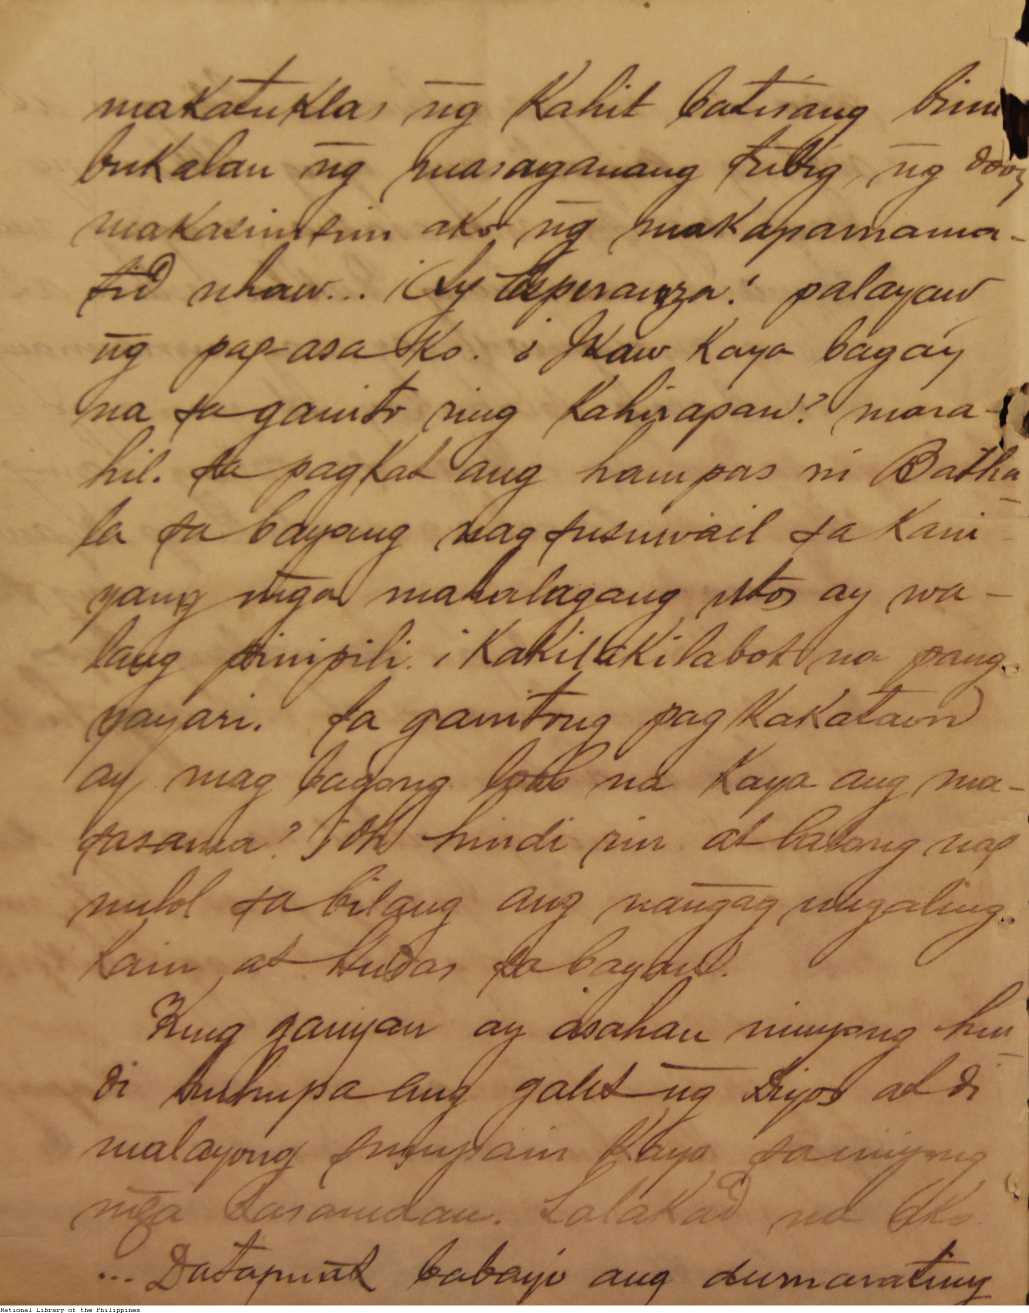 makatuklas n͠g kahit batisang binu
bukalan n͠g masaganang tubig, n͠g doo'y
makasimsim ako n͠g makapamama-
tid uhaw... ¡Ay Esperanza! palayaw
n͠g pag-asa ko. ¿Ikaw kaya bagay
na sa ganito ring kahirapan? mara-
hil. sa pagkat ang hampas ni Batha
la sa bayang nagsusuwail sa kani
yang mga mahalagang utos ay wa-
lang pinipili. ¡Kakilakilabot na pang
yayari. Sa ganitong pagkakataon
ay mag bagong loob na kaya ang ma-
sasama? ¡Oh hindi rin at balong nag
mula sa bilang ang nangag
kain at Hudas sa bayan.
Kung ganyan ay asahan ninyong hin
di huhupa ang galit ng Dios at di
malayong kayo sa inyong
mga kasamaan. Lalakad na ako
... Datapwat babayi ang dumarating
National Library of the Philippines